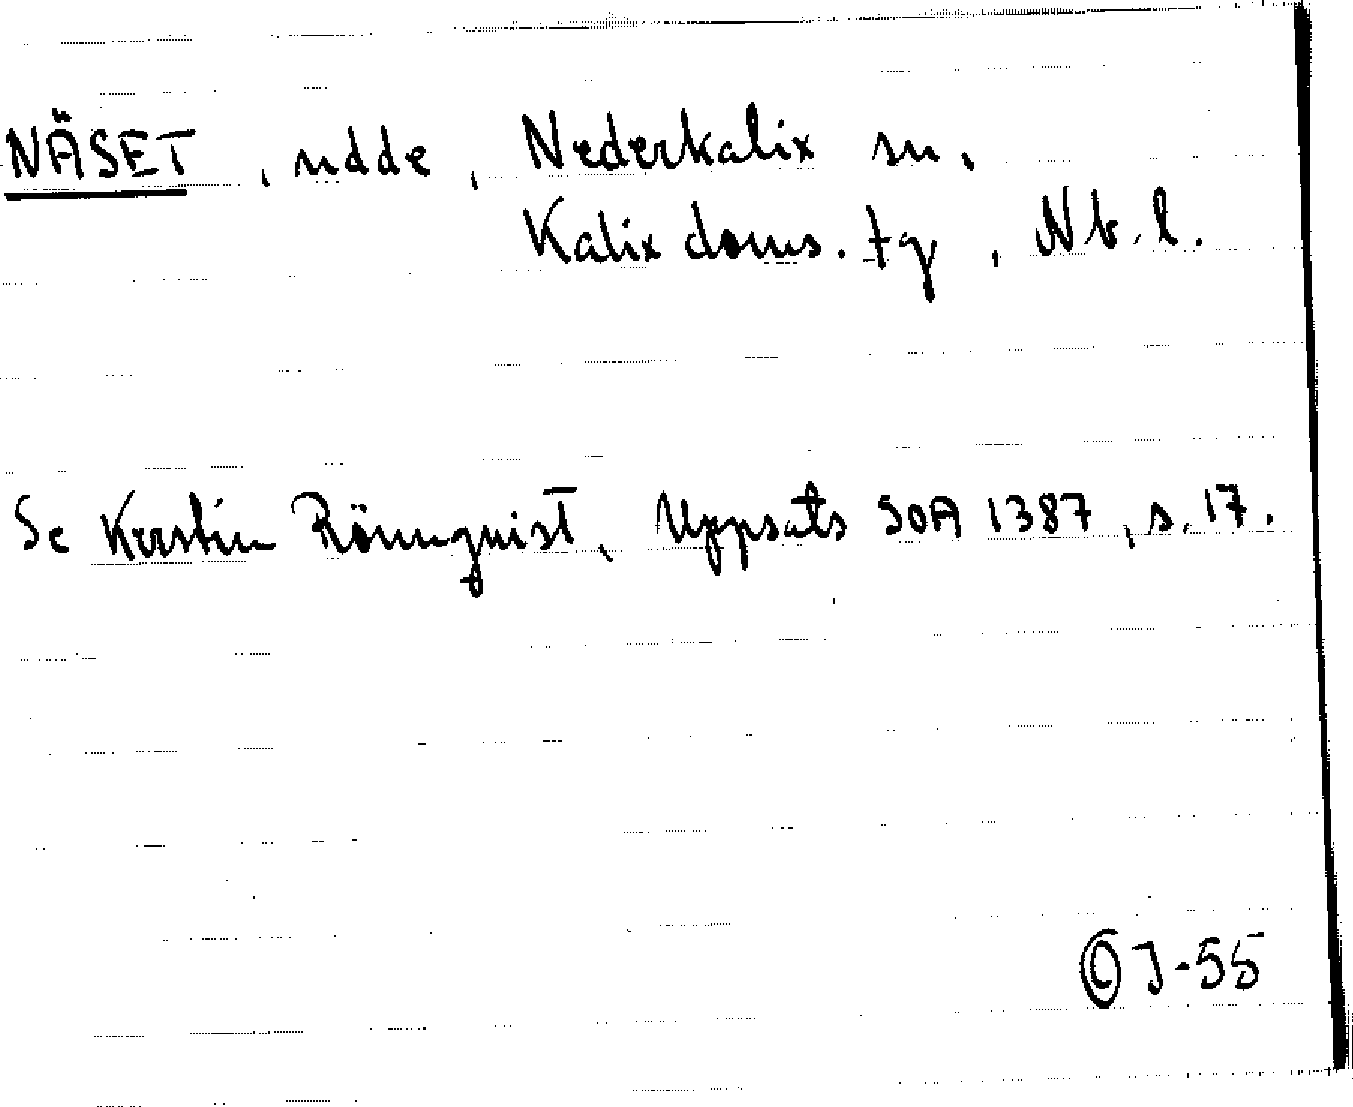 NÄSET, udde, Nederkalix sn.
Kalix doms. tg, Nb.l.
Se Kerstin Rönnquist, Uppsats SOA 1387, s. 17.
© J-55